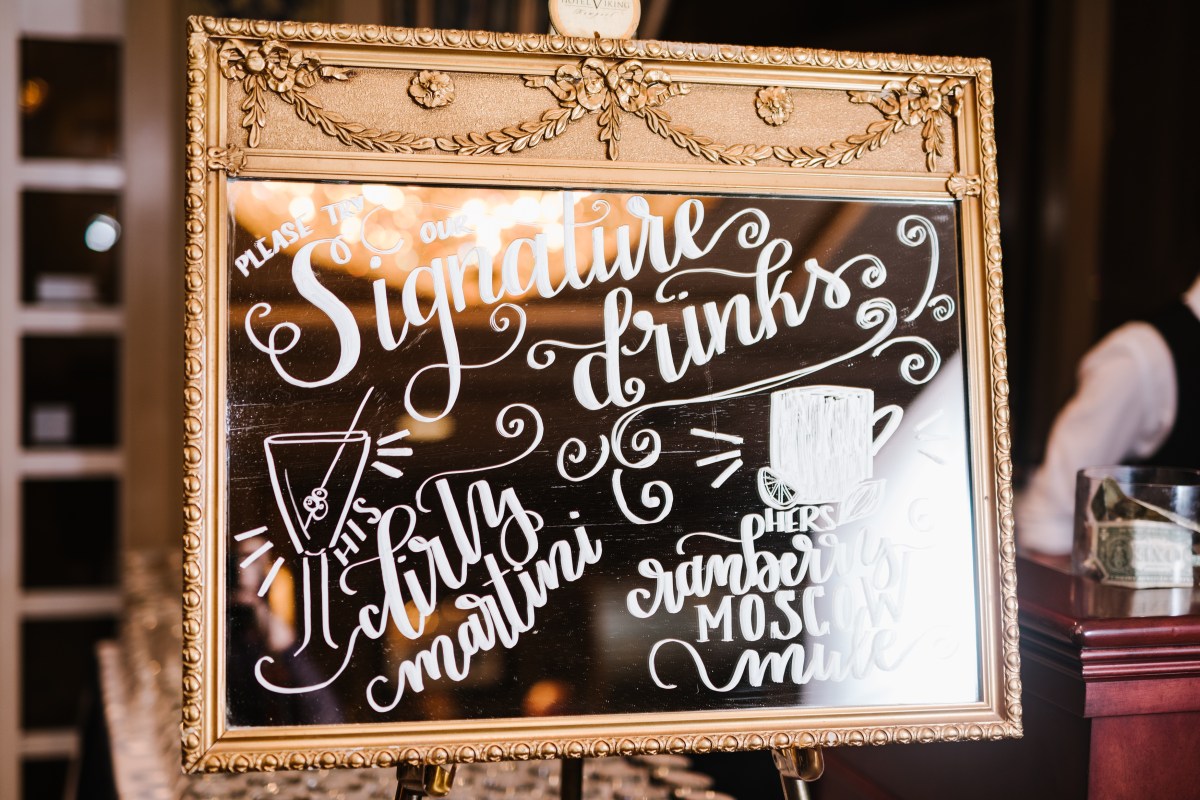 HOTEL VIKING
PLEASE TRY OUR
Signature
drinks
HIS
dirty
martini
HERS
cranberry
MOSCOW
mule